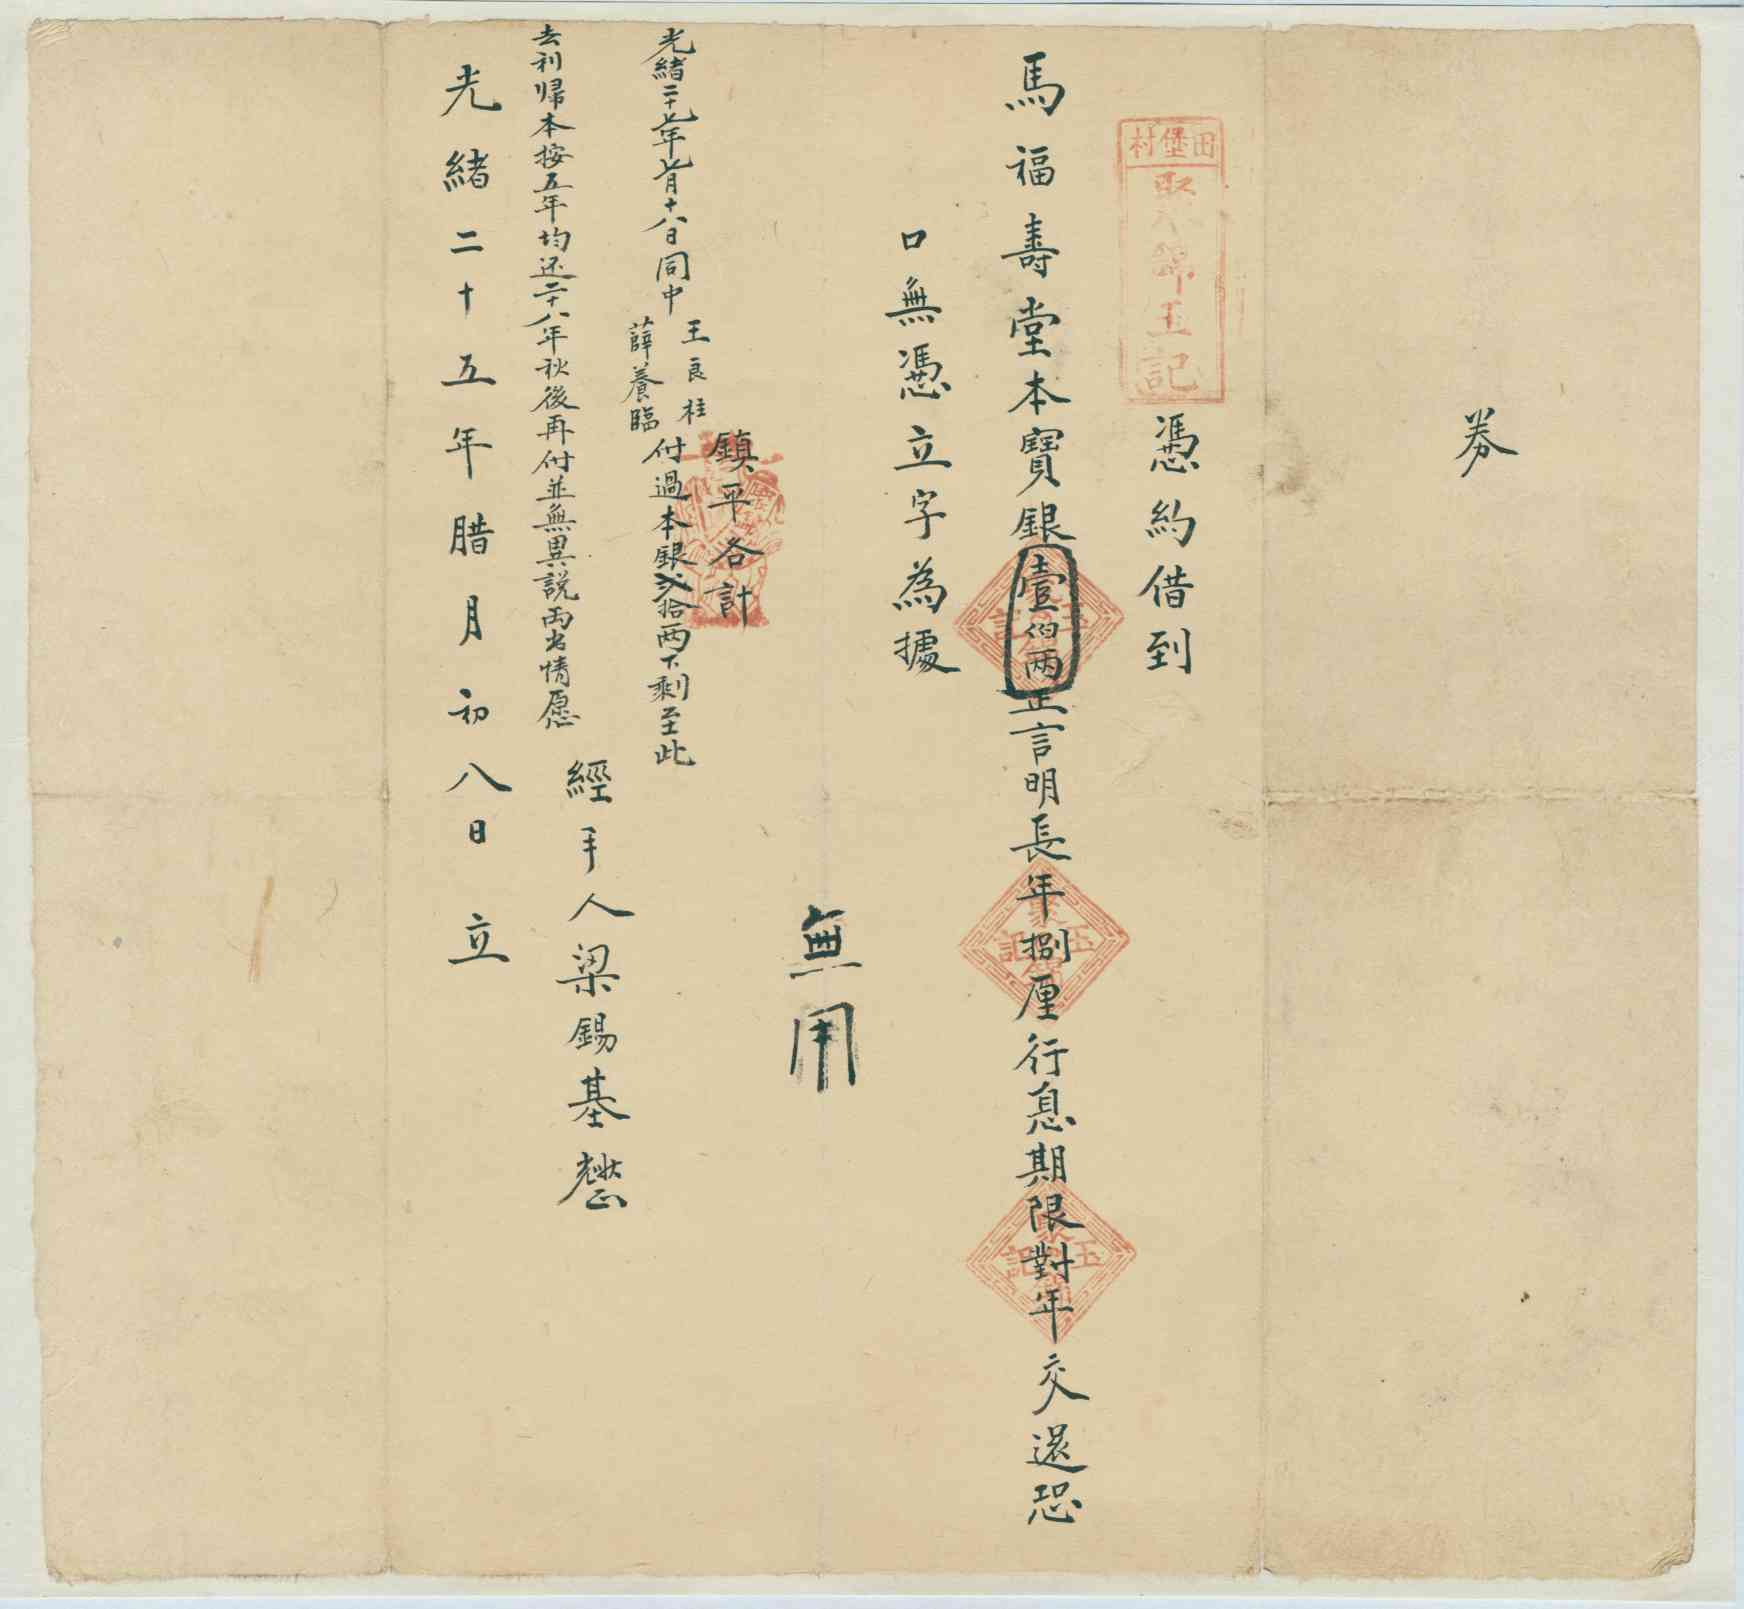 券
田堡村
聚錦玉記
憑約借到
馬福壽堂本寶銀壹伯两正言明長年捌厘行息期限對年交還恐
口無憑立字為據
聚錦玉記
聚錦玉記
聚錦玉記
無用
鎮平各計
光緒二十七年七月十八日同中
王良柱
薛養臨
付過本銀貳拾两下剩至此
去利歸本按五年均还二十八年秋後再付並無異説两出情愿
經手人梁錫基
光緒二十五年腊月初八日立